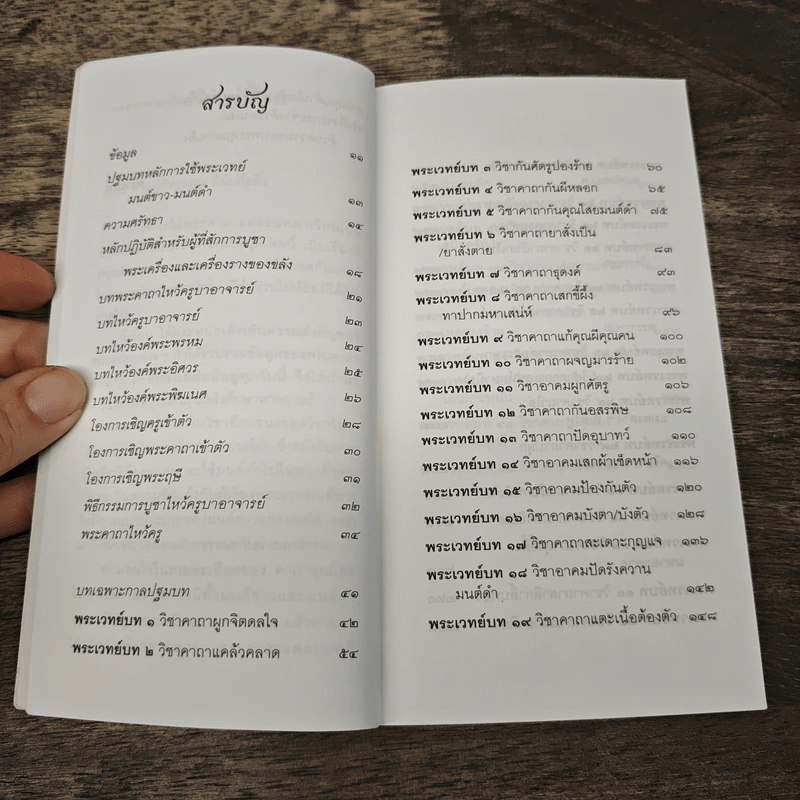 สารบัญ
ข้อมูล ๑๑
ปฐมบทหลักการใช้พระเวทย์
มนต์ขาว-มนต์ดำ ๑๓
ความศรัทธา ๑๔
หลักปฏิบัติสำหรับผู้ที่สักการบูชา
พระเครื่องและเครื่องรางของขลัง ๑๘
บทพระคาถาไหว้ครูบาอาจารย์ ๒๑
บทไหว้ครูบาอาจารย์ ๒๓
บทไหว้องค์พระพรหม ๒๔
บทไหว้องค์พระอิศวร ๒๕
บทไหว้องค์พระพิฆเนศ ๒๖
โองการเชิญครูเข้าตัว ๒๘
โองการเชิญพระคาถาเข้าตัว ๓๐
โองการเชิญพระฤๅษี ๓๑
พิธีกรรมการบูชาไหว้ครูบาอาจารย์ ๓๒
พระคาถาไหว้ครู ๓๔
บทเฉพาะกาลปฐมบท ๔๑
พระเวทย์บท ๑ วิชาคาถาผูกจิตดลใจ ๔๒
พระเวทย์บท ๒ วิชาคาถาแคล้วคลาด ๕๔
พระเวทย์บท ๓ วิชากันศัตรูปองร้าย ๖๐
พระเวทย์บท ๔ วิชาคาถากันผีหลอก ๖๕
พระเวทย์บท ๕ วิชาคาถากันคุณไสยมนต์ดำ ๗๕
พระเวทย์บท ๖ วิชาคาถายาสั่งเป็น
/ยาสั่งตาย ๘๓
พระเวทย์บท ๗ วิชาคาถาธุดงค์ ๙๓
พระเวทย์บท ๘ วิชาคาถาเสกขี้ผึ้ง
ทาปากมหาเสน่ห์ ๙๖
พระเวทย์บท ๙ วิชาคาถาแก้คุณผีคุณคน ๑๐๐
พระเวทย์บท ๑๐ วิชาคาถาผจญมารร้าย ๑๐๒
พระเวทย์บท ๑๑ วิชาอาคมผูกศัตรู ๑๐๖
พระเวทย์บท ๑๒ วิชาคาถากันอสรพิษ ๑๐๘
พระเวทย์บท ๑๓ วิชาคาถาปัดอุบาทว์ ๑๑๐
พระเวทย์บท ๑๔ วิชาอาคมเสกผ้าเช็ดหน้า ๑๑๖
พระเวทย์บท ๑๕ วิชาอาคมป้องกันตัว ๑๒๐
พระเวทย์บท ๑๖ วิชาอาคมบังตา/บังตัว ๑๒๘
พระเวทย์บท ๑๗ วิชาคาถาสะเดาะกุญแจ ๑๓๖
พระเวทย์บท ๑๘ วิชาอาคมปัดรังควาน
มนต์ดำ ๑๔๒
พระเวทย์บท ๑๙ วิชาคาถาแตะเนื้อต้องตัว ๑๔๘